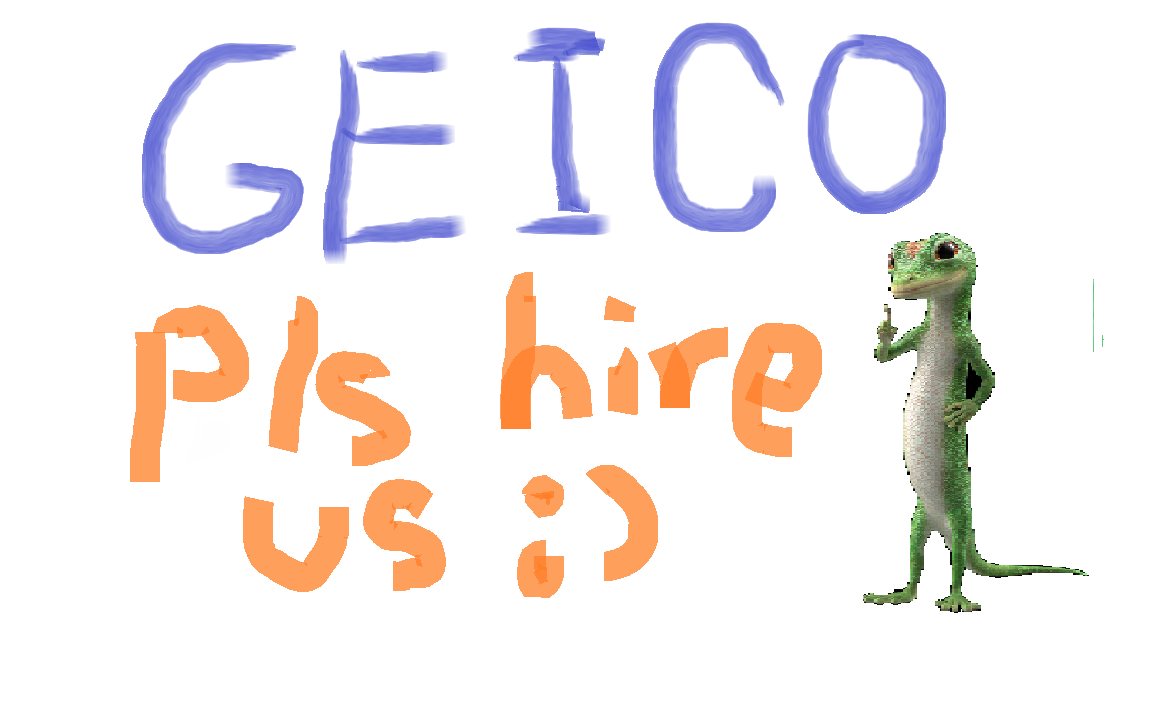 GEICO
pls hire
us :)